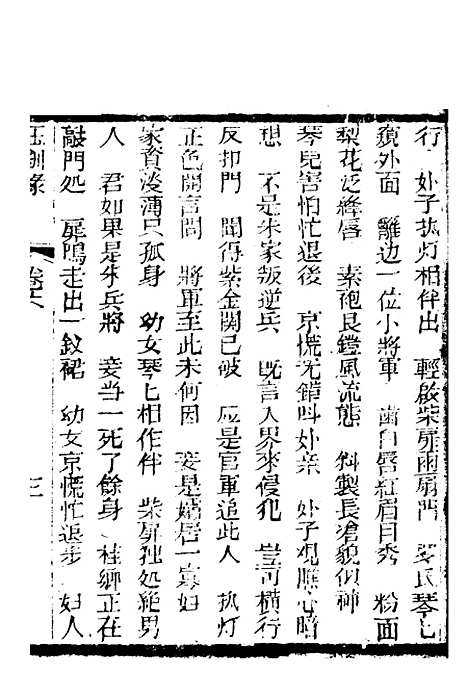 行　妙子执灯相伴出　輕啟柴扉兩扇門　琴氏琴七
窺外面　離边一位小將軍　齒白唇紅眉目秀　粉面
梨花泛絳唇　素袍艮鎧風流態　斜製長滄貌似神
琴見害怕忙退後　京慌无錯呌妙亲　妙子观瞧心暗
想　不是朱家叛逆兵　既言入界來侵犯　豈可橫行
反扣門　聞得紫金関已破　应是官軍追此人　执灯
正色開言問　將軍至此未何因　妾是孀居一寡妇
家資淡薄只孤身　幼女琴七相作伴　柴扉独处絶男
人　君如果是朱兵將　妾当一死了餘身　桂鄉正在
敲門处　扉鳴走出一釵裙　幼女京慌忙退步　妇人
玉釧縁　卷六　三